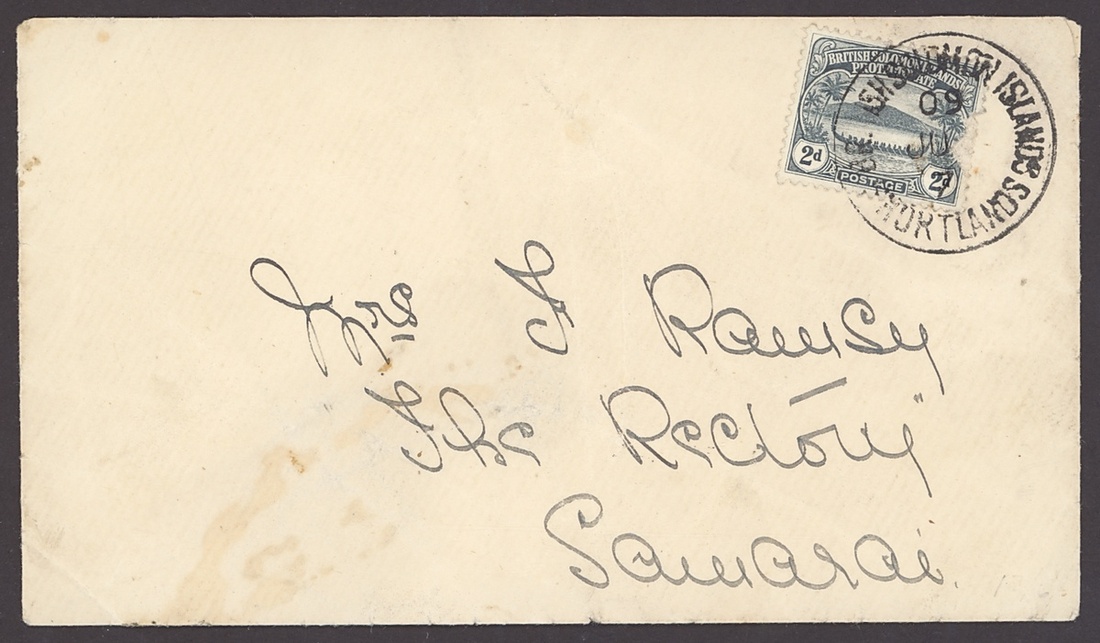 BRITISH SOLOMON ISLANDS
PROTECTORATE
2d
POSTAGE
2d
BRITISH SOLOMON ISLANDS SHORTLANDS
09
JU
Mrs F Ramsy
The Rectory"
Samarai.